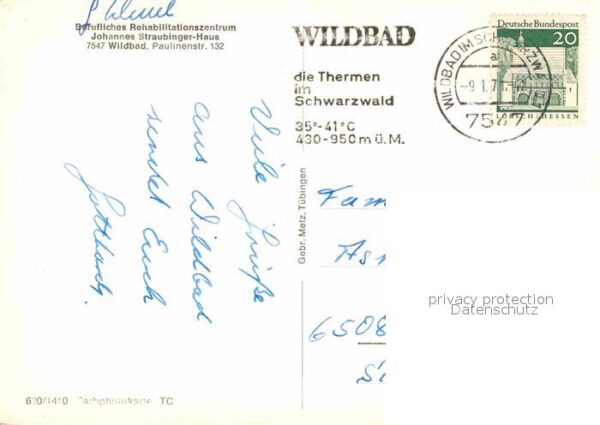 Berufliches Rehabilitationszentrum
Johannes Straubinger-Haus
7547 Wildbad, Paulinenstr. 132
WILDBAD
die Thermen
im
Schwarzwald
35°-41°C
430-950 m ü. M.
Deutsche Bundespost
20
LORSCH/HESSEN
WILDBAD IM SCHWARZW
a
-9.1.7
7547
Viele Grüße
aus Wildbad
sendet Euch
Gotthard.
Gebr. Metz, Tübingen
Fam
6508
privacy protection
Datenschutz
620/1410 Farbphotokarte TC